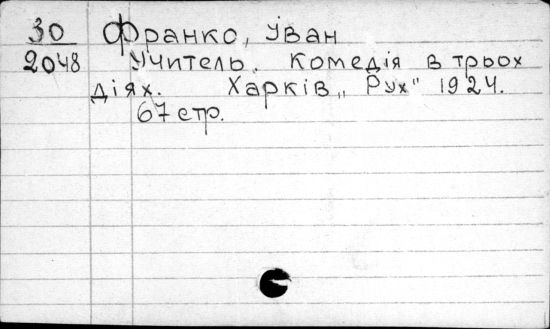 30 Франко, Іван
2048 Учитель. Комедія в трьох
діях. Харків „Рух" 1924.
67 стр.